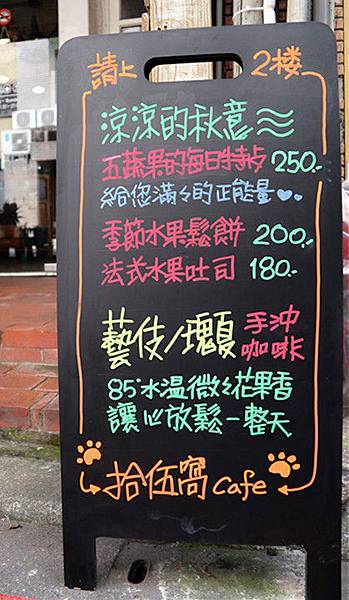 請上 2樓
涼涼的秋意
五蔬果的每日特餐 250.-
給您滿々的正能量
季節水果鬆餅 200.-
法式水果吐司 180.-
藝伎/瑰夏 手沖咖啡
85°水溫微々花果香
讓心放鬆一整天
拾伍窩 cafe